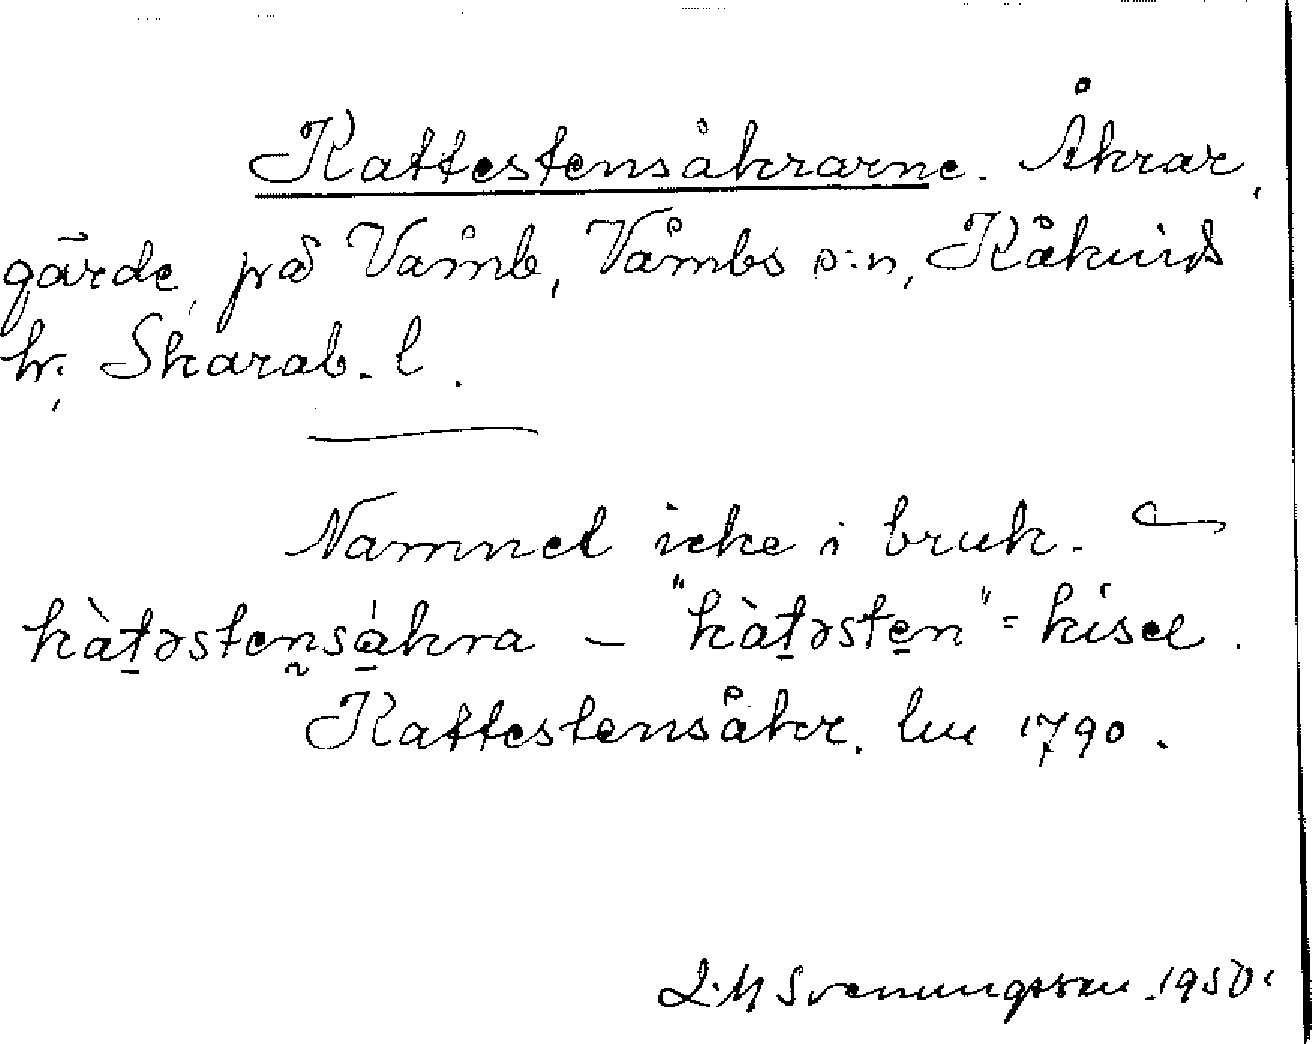 Kattestensåkrarne. Åkrar,
gärde, på Våmb, Våmbs s:n, Kåkinds
hr, Skarab. l.
Namnet icke i bruk. —
kàtəstensåkra — "kàtəsten" = kisel.
Kattestensåkr. lm 1790.
L. M Svenungsson. 1950.